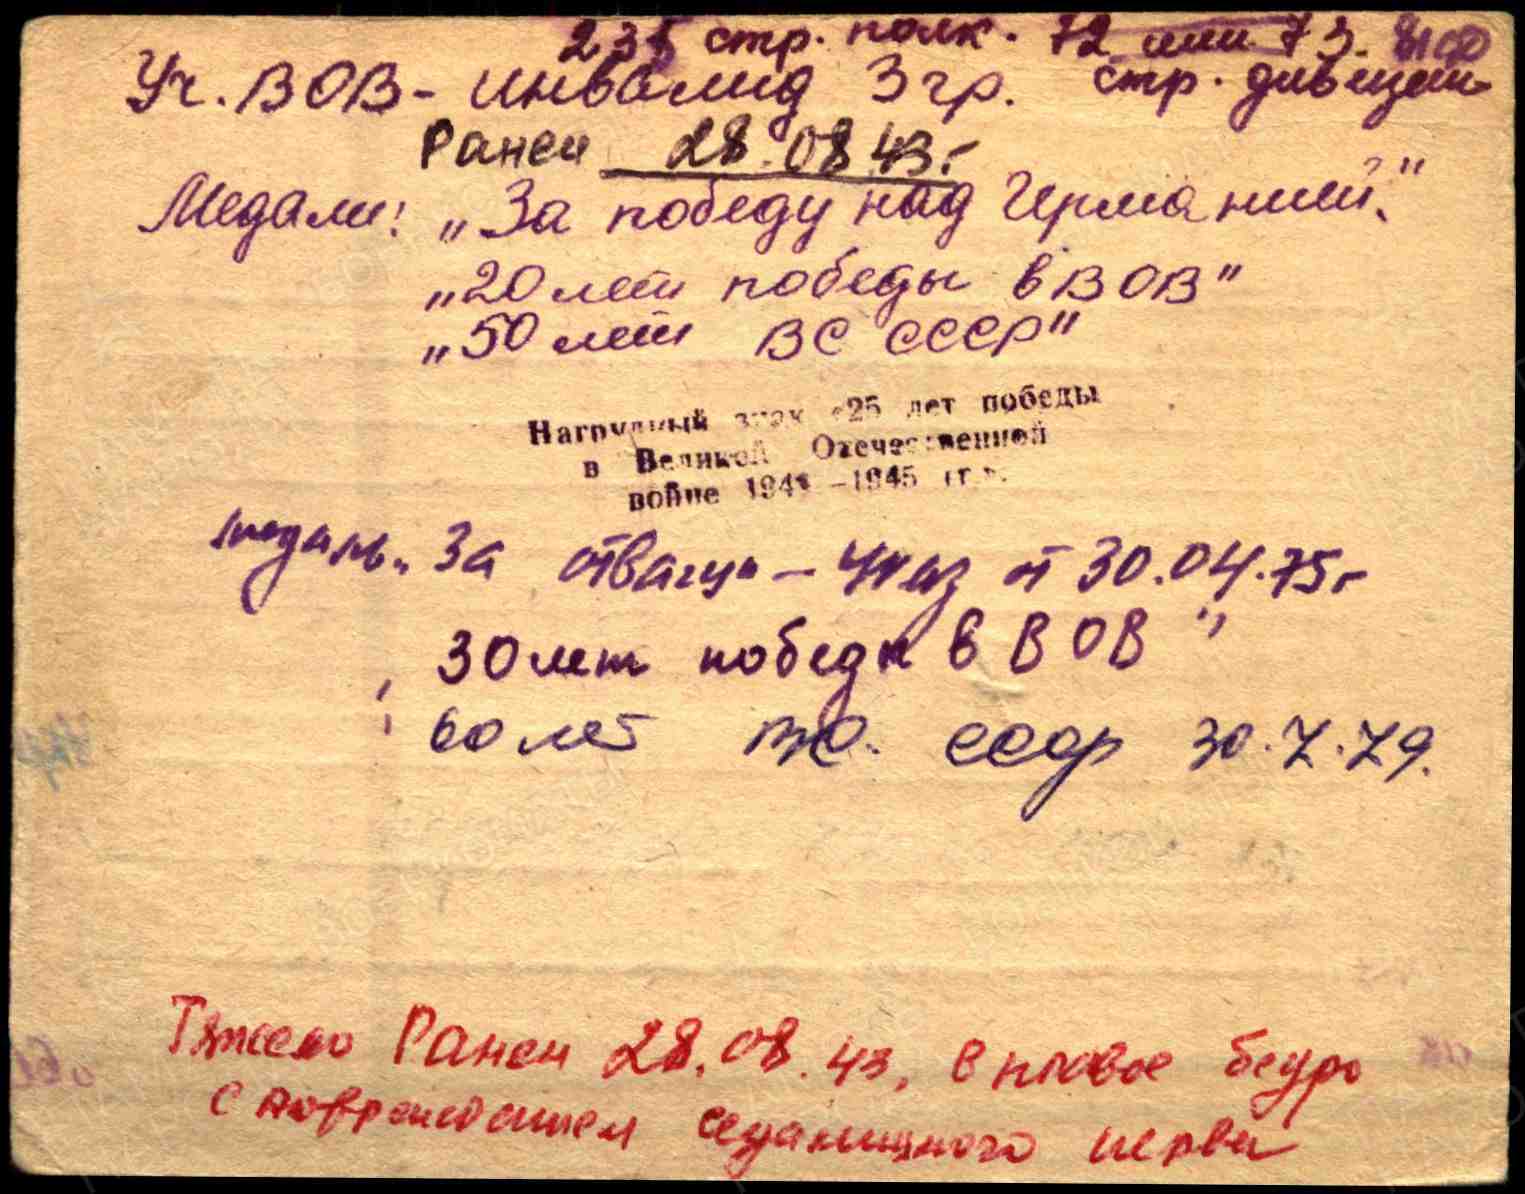 235 стр. полк. 72 или 73.
Уч. ВОВ - инвалид 3 гр. стр. дивизии
Ранен 28.08.43 г
Медали: „За победу над Германией."
„20 лет победы в ВОВ"
„50 лет ВС СССР"
Нагрудный знак «25 лет победы
в Великой Отечественной
войне 1941-1945 гг.».
медаль „За отвагу" - Указ от 30.04.75 г
30 лет победы в ВОВ"
60 лет ВС. СССР 30.7.79.
Тяжело Ранен 28.08.43, в правое бедро
с повреждением седалищного нерва